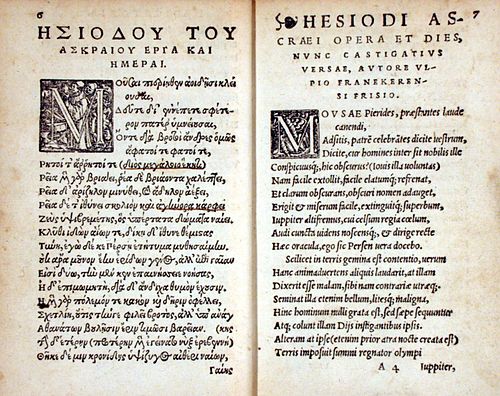 6
ΗΣΙΟΔΟΥ ΤΟΥ
ΑΣΚΡΑΙΟΥ ΕΡΓΑ ΚΑΙ
ΗΜΕΡΑΙ.
Μοῦσαι πιερίηθεν ἀοιδῇσι κλεί
ουσαι,
Δεῦτε δὴ ἐννέπετε σφέτε-
ρον πατέρ' ὑμνείουσαι,
Ὅντε διὰ βροτοὶ ἄνδρες ὁμῶς
ἄφατοί τε φατοί τε,
Ῥητοί τ' ἄρρητοί τε (διὸς μεγάλοιο ἕκητι)
Ῥέα μὲν γὰρ βριάει, ῥέα δὲ βριάοντα χαλέπτει,
Ῥεῖα δ' ἀρίζηλον μινύθει, καὶ ἄδηλον ἀέξει,
Ῥεῖα δέ τ' ἰθύνει σκολιὸν καὶ ἀγήνορα κάρφει
Ζεὺς ὑψιβρεμέτης, ὃς ὑπέρτατα δώματα ναίει.
Κλῦθι ἰδὼν ἀΐων τε, δίκῃ δ' ἴθυνε θέμιστας
Τύνη, ἐγὼ δέ κε Πέρσῃ ἐτήτυμα μυθησαίμην.
Οὐκ ἄρα μοῦνον ἔην ἐρίδων γένος, ἀλλ' ἐπὶ γαῖαν
Εἰσὶ δύω, τὴν μέν κεν ἐπαινήσειε νοήσας,
Ἡ δ' ἐπιμωμητὴ, διὰ δ' ἄνδιχα θυμὸν ἔχουσιν.
Ἡ μὲν γὰρ πόλεμόν τε κακὸν καὶ δῆριν ὀφέλλει,
Σχετλίη, οὔτις τήν γε φιλεῖ βροτὸς, ἀλλ' ὑπ' ἀνάγ
Ἀθανάτων βουλῇσιν ἔριν τιμῶσι βαρεῖαν. (κης
Τὴν δ' ἑτέρην προτέρην μὲν ἐγείνατο νὺξ ἐρεβεννὴ
Θῆκε δέ μιν κρονίδης ὑψίζυγος αἰθέρι ναίων,
Γαίης
7
HESIODI AS-
CRAEI OPERA ET DIES,
NVNC CASTIGATIVS
VERSAE, AVTORE VL-
PIO FRANEKEREN-
SI FRISIO.
MOVSAE Pierides, præstantes laude
canendi,
Adsitis, patrẽ celebrãtes dicite uestrum,
Dicite, cur homines inter sit nobilis ille
Conspicuusq;, hic obscurus? (Iouis illa uoluntas)
Nam facile extollit, facile elatumq; refrenat,
Et clarum obscurat, obscuri nomen adauget,
Erigit & miserum facile, extinguitq; superbum,
Iuppiter altifremus, cui celsum regia cœlum,
Audi cunctis uidens noscensq;, & dirige recte
Hæc oracula, ego sic Persen uera docebo.
Scilicet in terris gemina est contentio, uerum
Hanc animaduertens aliquis laudarit, at illam
Dixerit esse malam, sibi nam contraria utræq;.
Seminat illa etenim bellum, litesq; maligna,
Hinc hominum nulli grata est, sed sæpe sequuntur
Atq; colunt illam Dijs instigantibus ipsis.
Alteram at ipse (etenim prior atra nocte creata est)
Terris imposuit summi regnator olympi
A 4 Iuppiter,